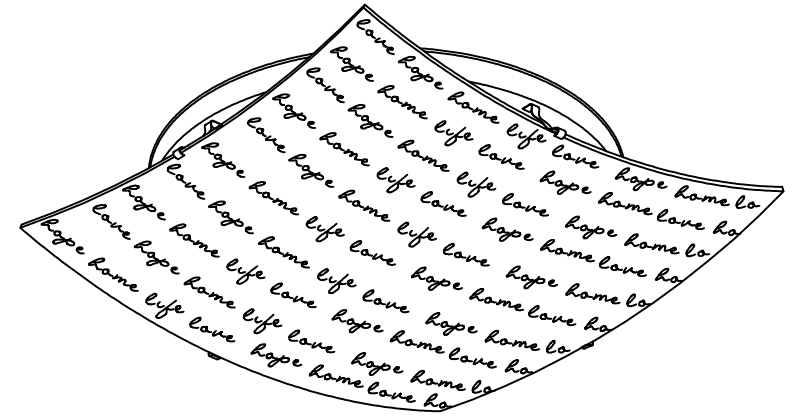 love hope home life love hope home lo
hope home life love hope home love ho
love hope home life love hope home lo
hope home life love hope home love ho
love hope home life love hope home lo
hope home life love hope home love ho
love hope home life love hope home lo
hope home life love hope home love ho
love hope home life love hope home lo
hope home life love hope home love ho